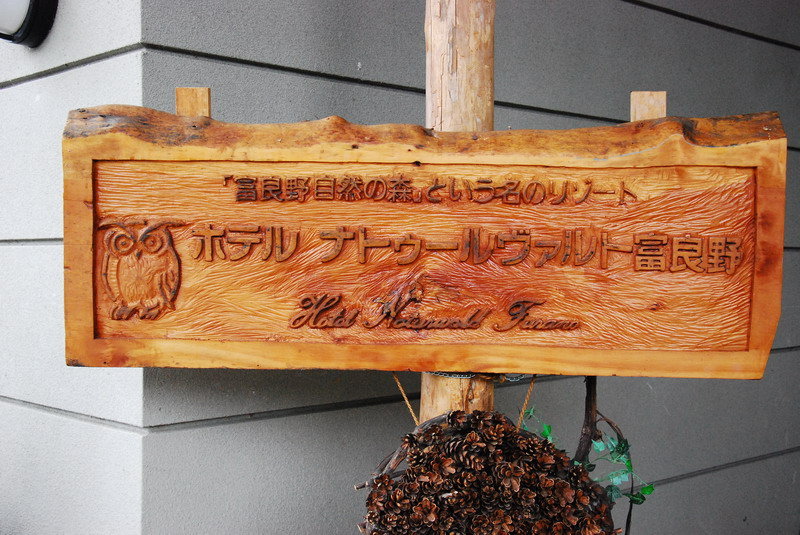 「富良野自然の森」という名のリゾート
ホテル ナトゥールヴァルト富良野
Hotel Naturwald Furano